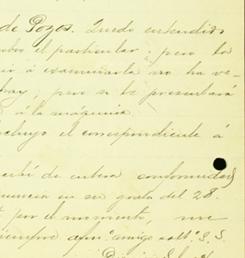 de Pozos. Quedo entendido
sobre el particular; pero la
ir á examinarla no ha ve-
hay; pero se le presentará
á la máquina.
cluyo el correspondiente á
recibí de entera conformidad
en su grata del 28.
por el momento, me
siempre afmo. amigo S. S.